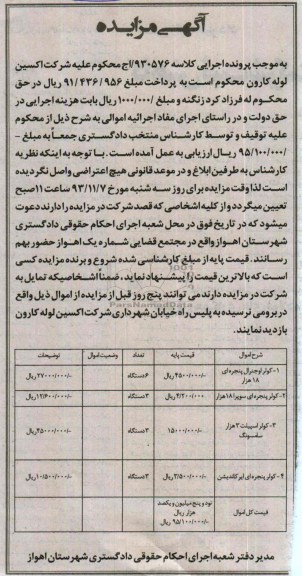 آگهی مزایده
به موجب پرونده اجرایی کلاسه ۹۳۰۵۷۶/اج محکوم علیه شرکت اکسین
لوله کارون محکوم است به پرداخت مبلغ ۹۱/۴۳۶/۹۵۶ ریال در حق
محکوم له فرزاد کرد زنگنه و مبلغ ۱۰۰۰/۰۰۰/ ریال بابت هزینه اجرایی در
حق دولت و در راستای اجرای مفاد اجرائیه اموالی به شرح ذیل از محکوم
علیه توقیف و توسط کارشناس منتخب دادگستری جمعاً به مبلغ -
/۹۵/۱۰۰/۰۰۰ ریال ارزیابی به عمل آمده است. با توجه به اینکه نظریه
کارشناس به طرفین ابلاغ و در موعد قانونی هیچ اعتراضی واصل نگردیده
است لذا وقت مزایده برای روز سه شنبه مورخ ۹۳/۱۱/۷ ساعت ۱۱ صبح
تعیین میگردد و از کلیه اشخاصی که قصد شرکت در مزایده را دارند دعوت
میشود که در تاریخ فوق در محل شعبه اجرای احکام حقوقی دادگستری
شهرستان اهواز واقع در مجتمع قضایی شماره یک اهواز حضور بهم
رسانند. قیمت پایه از مبلغ کارشناسی شده شروع و برنده مزایده کسی
است که بالاترین قیمت را پیشنهاد نماید، ضمناً اشخاصیکه تمایل به
شرکت در مزایده دارند می توانند پنج روز قبل از مزایده از اموال ذیل واقع
در برومی نرسیده به پلیس راه خیابان شهرداری شرکت اکسین لوله کارون
بازدید نمایند.
شرح اموال قیمت پایه تعداد وضعیت اموال توضیحات
۱- کولر اوجنرال پنجره ای ۱۸ هزار ۴۵۰۰/۰۰۰/- ریال ۶ دستگاه ۲۷۰۰۰/۰۰۰/- ریال
۲- کولر پنجره ای سوپرا ۱۸ هزار ۴/۲۰۰/۰۰۰ ریال ۳ دستگاه ۱۲/۶۰۰/۰۰۰/- ریال
۳- کولر اسپیلت ۳ هزار سامسونگ ۱۵۰۰۰/۰۰۰/- ۳ دستگاه ۴۵۰۰۰/۰۰۰/- ریال
۴- کولر پنجره ای ایرکاندیشن ۳/۵۰۰/۰۰۰/- ریال ۳ دستگاه ۱۰/۵۰۰/۰۰۰/- ریال
قیمت کل اموال نود و پنج میلیون و یکصد هزار ریال ۹۵/۱۰۰/۰۰۰/- ریال
مدیر دفتر شعبه اجرای احکام حقوقی دادگستری شهرستان اهواز